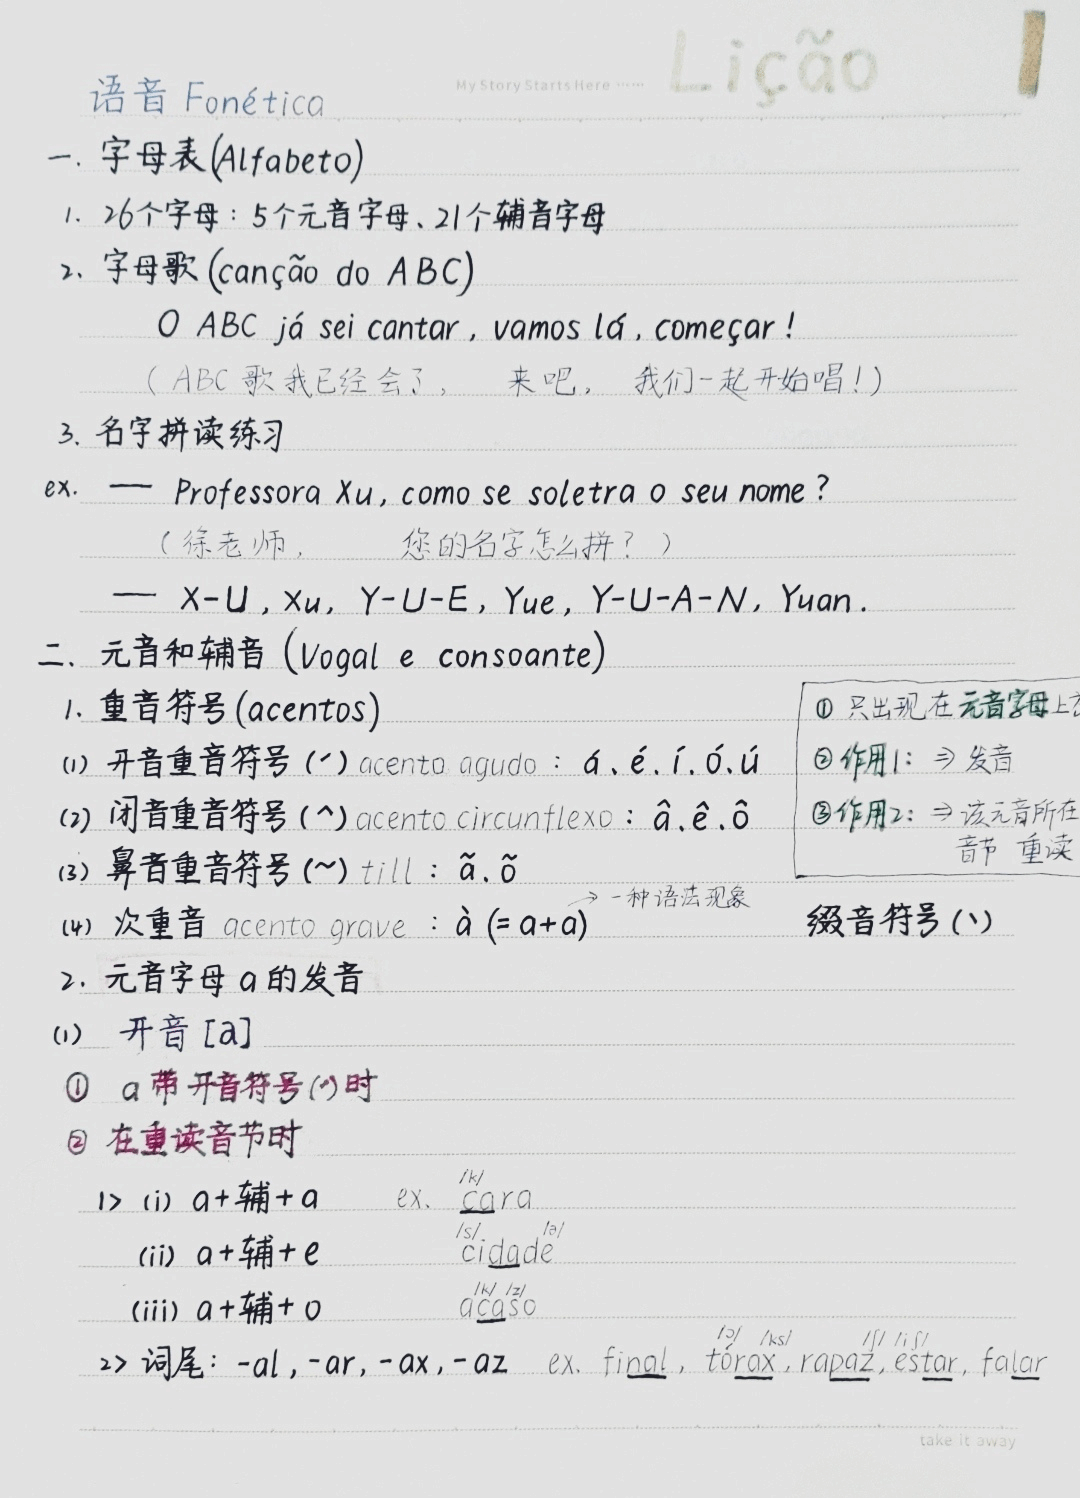 My Story Starts Here ······ Lição
语音 Fonética
一. 字母表(Alfabeto)
1. 26个字母：5个元音字母、21个辅音字母
2. 字母歌(canção do ABC)
O ABC já sei cantar, vamos lá, começar!
(ABC歌我已经会了, 来吧, 我们一起开始唱!)
3. 名字拼读练习
ex. — Professora Xu, como se soletra o seu nome?
(徐老师, 您的名字怎么拼?)
— X-U, Xu, Y-U-E, Yue, Y-U-A-N, Yuan.
二. 元音和辅音 (Vogal e consoante)
1. 重音符号(acentos)
① 只出现在元音字母上
(1) 开音重音符号(´) acento agudo: á、é、í、ó、ú
②作用1: ⇒ 发音
(2) 闭音重音符号(^) acento circunflexo: â、ê、ô
③作用2: ⇒ 该元音所在
音节 重读
(3) 鼻音重音符号(~) till: ã、õ
→ 一种语法现象
(4) 次重音 acento grave: à (= a+a)
缀音符号(丶)
2. 元音字母 a 的发音
(1) 开音 [a]
① a 带开音符号(´)时
② 在重读音节时
/k/
1> (i) a+辅+a ex. cara
/s/ /ə/
(ii) a+辅+e cidade
/k/ /z/
(iii) a+辅+o acaso
/ɔ/ /ks/ /ʃ/ /iʃ/
2> 词尾: -al, -ar, -ax, -az ex. final, tórax, rapaz, estar, falar
take it away